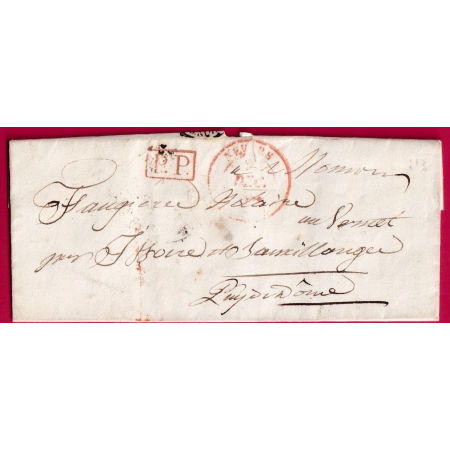 P.P.
à Monsieur
Faugiere Notaire
au Vernet
par Issoire et Sauxillanges
Puy de Dôme